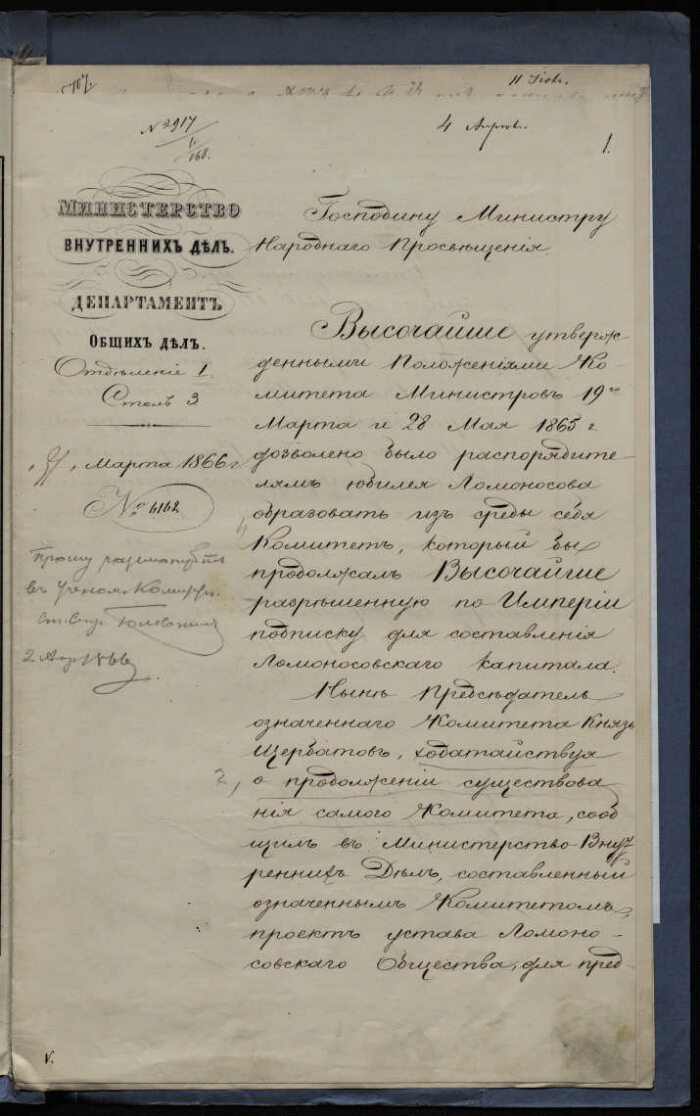 11 Іюля.
№ 2917
4 Апрѣля.
1.
МИНИСТЕРСТВО
ВНУТРЕННИХЪ ДѢЛЪ.
ДЕПАРТАМЕНТЪ
ОБЩИХЪ ДѢЛЪ.
Отдѣленіе 1.
Столъ 3
Марта 1866 г
№ 6162
Прошу разсмотрѣть
въ Ученом. Комит.
2 Апр 1866
Господину Министру
Народнаго Просвѣщенія.
Высочайше утверж-
денными Положеніями Ко-
митета Министровъ 19го
Марта и 28 Мая 1865 г
дозволено было распорядите-
лямъ юбилея Ломоносова
образовать изъ среды себя
Комитетъ, который бы
продолжалъ Высочайше
разрѣшенную по Имперіи
подписку для составленія
Ломоносовскаго капитала.
Нынѣ Предсѣдатель
означеннаго Комитета Князь
Щербатовъ, ходатайствуя
2, о продолженіи существова-
нія самого Комитета, сооб-
щилъ въ Министерство Внут-
реннихъ Дѣлъ, составленный
означеннымъ Комитетомъ,
проектъ устава Ломоно-
совскаго Общества, для пред-
V.